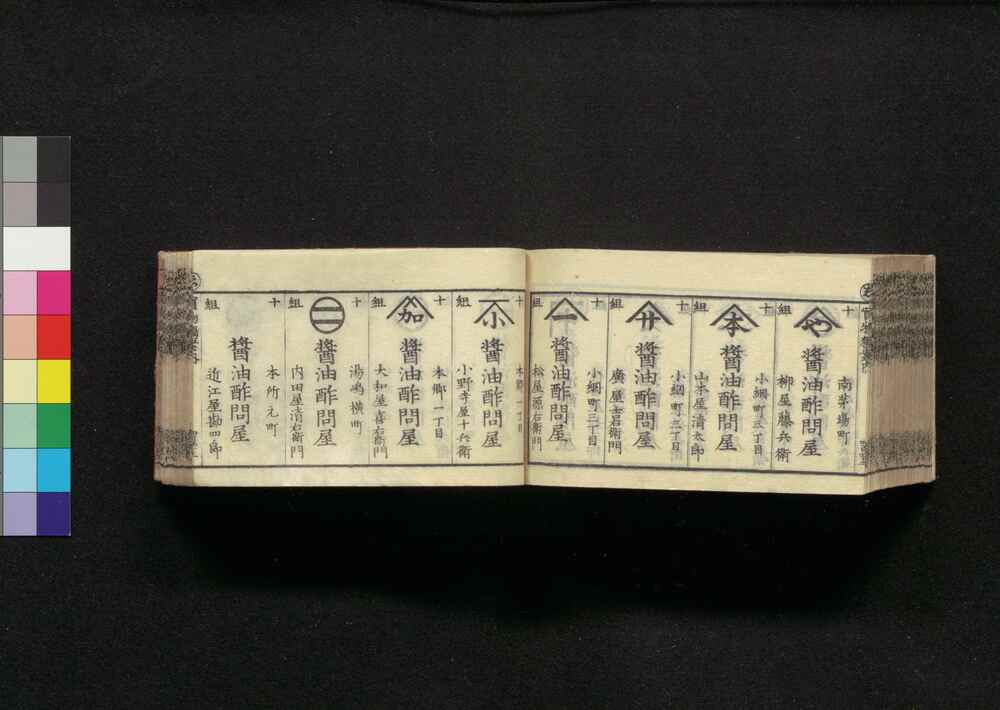 十
組
や
南茅場町
醬油酢問屋
柳屋藤兵衛
十
組
本
小網町三丁目
醬油酢問屋
山本屋清太郎
十
組
廿
小網町三丁目
醬油酢問屋
廣屋吉右衛門
十
組
一
小網町三丁目
醬油酢問屋
松屋源右衛門
十
組
小
本郷一丁目
醬油酢問屋
小野寺屋十兵衛
十
組
加
本郷一丁目
醬油酢問屋
大和屋喜右衛門
十
組
湯嶋横町
醬油酢問屋
内田屋清右衛門
十
組
本所元町
醬油酢問屋
近江屋勘四郎